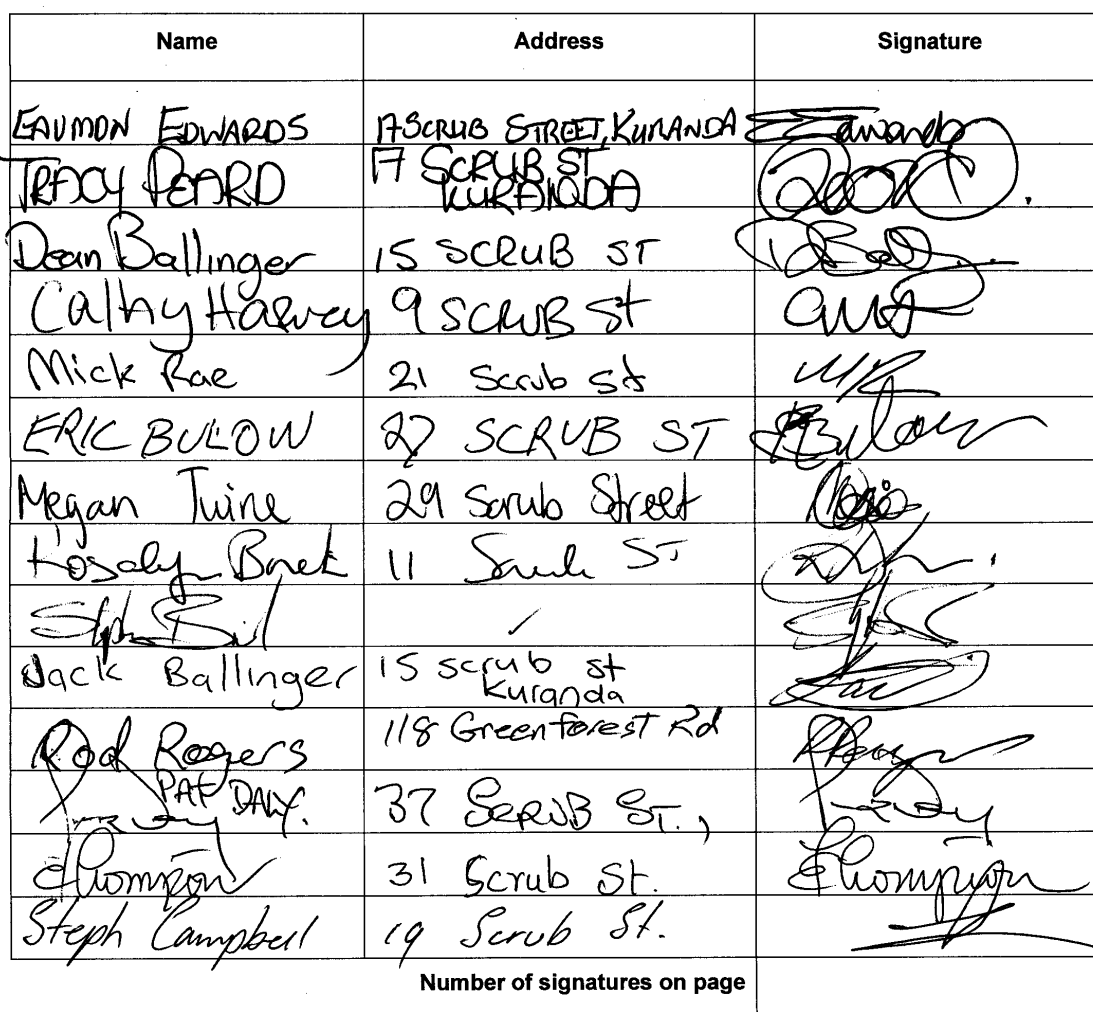 Name Address Signature
EAUMON EDWARDS 17 SCRUB STREET, KURANDA EEdwards
TRACY PEARD 17 SCRUB ST
KURANDA
Dean Ballinger 15 SCRUB ST
Cathy Harvey 9 SCRUB St
Mick Rae 21 Scrub st MR
ERIC BULOW 27 SCRUB ST EBulow
Megan Twine 29 Scrub Street
11 Scrub ST
✓
Jack Ballinger 15 scrub st
Kuranda
Rod Rogers 118 Greenforest Rd
PAT DALY. 37 SCRUB ST.,
EThompson 31 Scrub St. EThompson
Steph Campbell 19 Scrub St.
Number of signatures on page